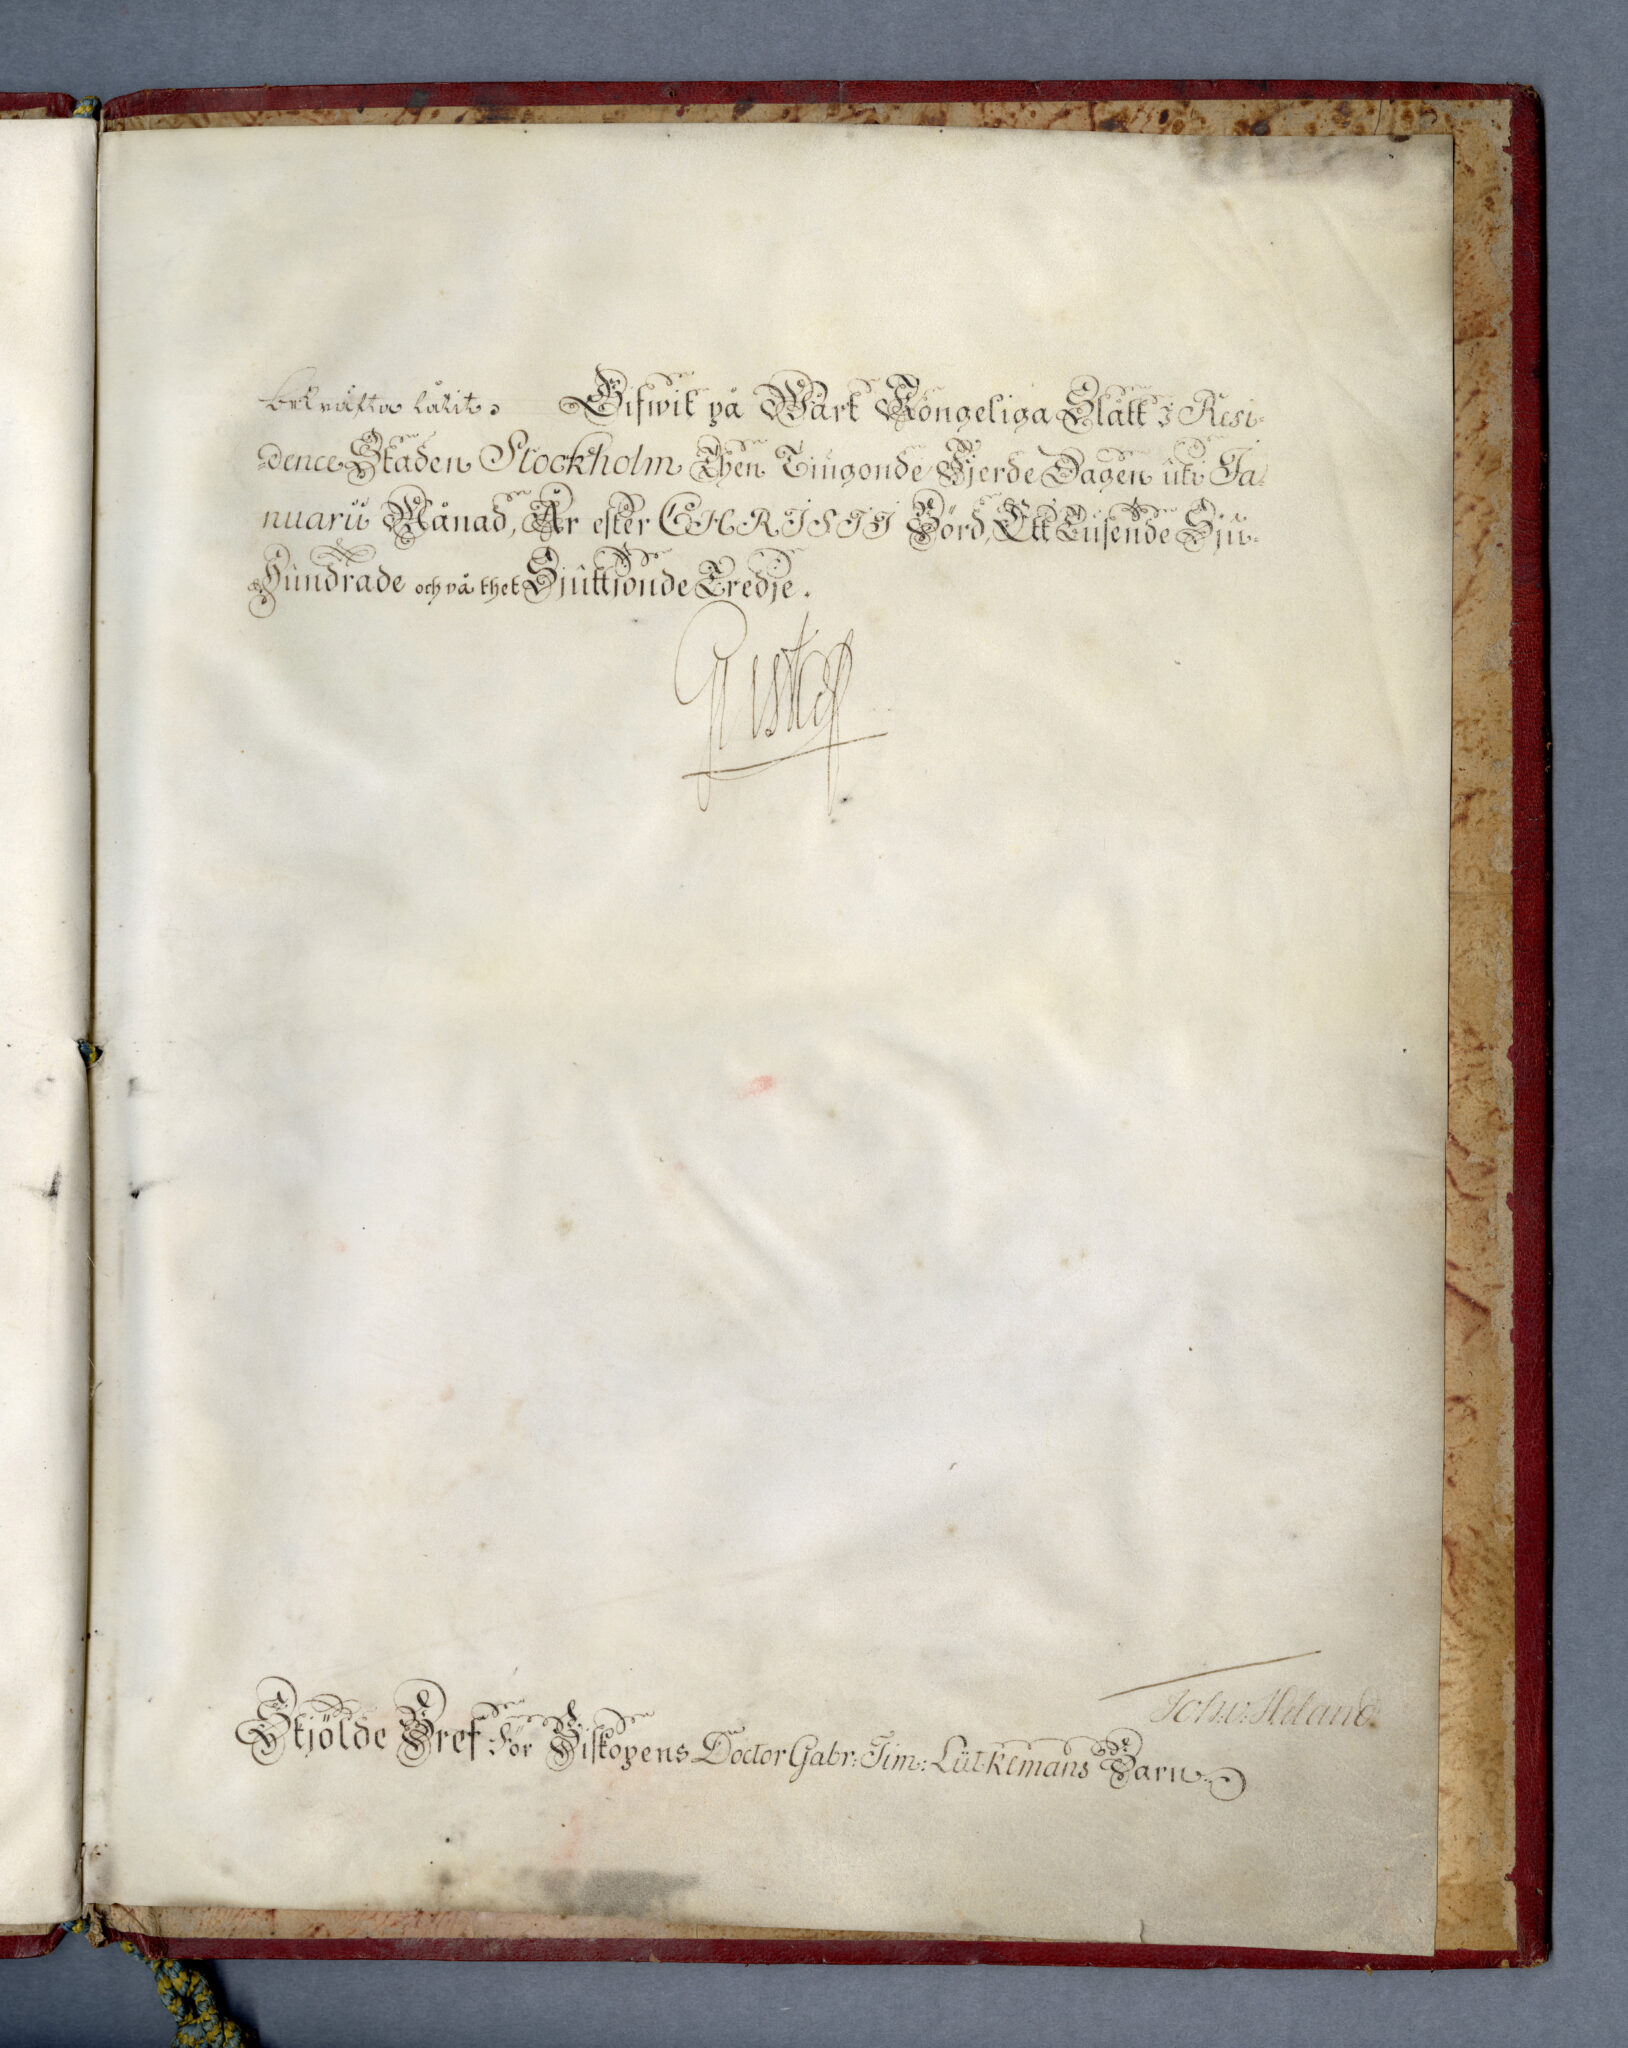 bekräfta låtit. Gifwit på Wårt Kongeliga Slått i Resi-
dence Staden Stockholm Then Tiugonde Fjerde Dagen uti Ja-
nuarii Månad, År efter CHRISTI Börd, Ett Tusende Sju-
Hundrade och på thet Sjuttjonde Tredje.
Gustaf
Joh: v: Heland
Skjölde Bref För Biskopens Doctor Gabr: Tim: Lütkemans Barn